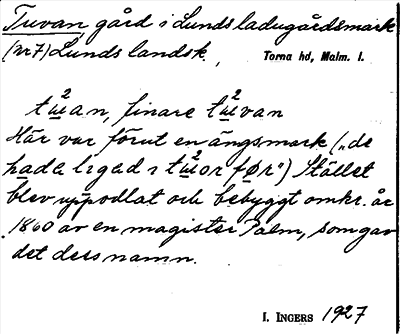 Tuvan gård i Lunds ladugårdsmark
(nr 7) Lunds landsk., Torna hd, Malm. l.
tω²an, finare tω²van
Här var förut en ängsmark („de
hada ligad i tω²or før") Stället
blev uppodlat och bebyggt omkr. år
1860 av en magister Palm, som gav
det dess namn.
I. INGERS 1927